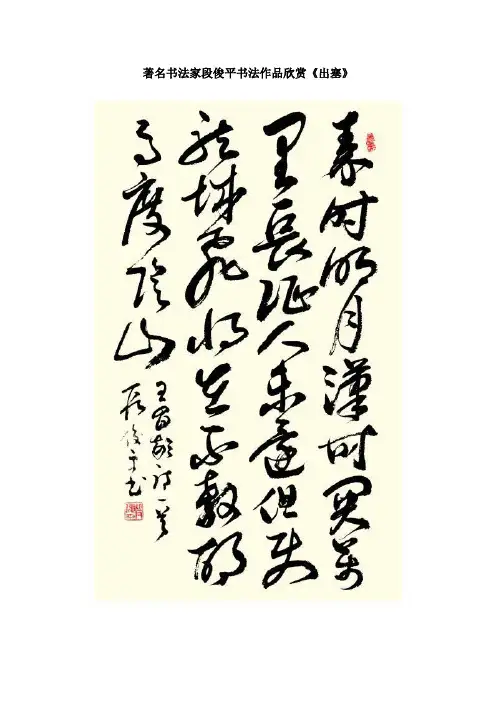 著名书法家段俊平书法作品欣赏《出塞》
秦时明月漢时関萬
里長征人未還但使
龍城飛将在不教胡
馬度陰山
王昌齡诗一首
段俊平书